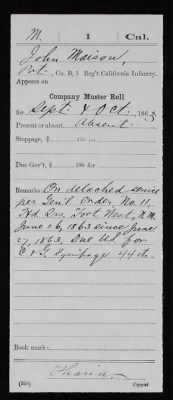 M. 1 Cal.
John Maison,
Pvt., Co. B, 1 Reg't California Infantry.
Appears on
Company Muster Roll
for Sept. & Oct., 1863
Present or absent Absent.
Stoppage, $ 100 for
Due Gov't, $ 100 for
Remarks: On detached service
per Gen'l Order, No. 11,
Hd. Qrs. Fort West, N.M.
June 26, 1863 since June
27, 1863, Due U.S. for
C & G Equipage 44 c.
Book mark:
(358) Copyist.